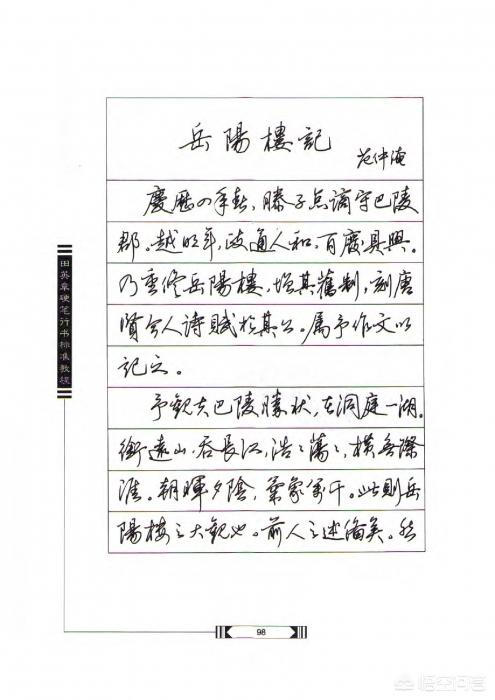 岳陽樓記
范仲淹
慶歷四年春，滕子京謫守巴陵
郡。越明年，政通人和，百廢具興。
乃重修岳陽樓，增其舊制，刻唐
賢今人詩賦於其上。屬予作文以
記之。
予觀夫巴陵勝狀，在洞庭一湖。
銜遠山，吞長江，浩〻蕩〻，橫無際
涯。朝暉夕陰，氣象萬千。此則岳
陽樓之大觀也。前人之述備矣。然
田英章硬笔行书标准教程
98
悟空问答